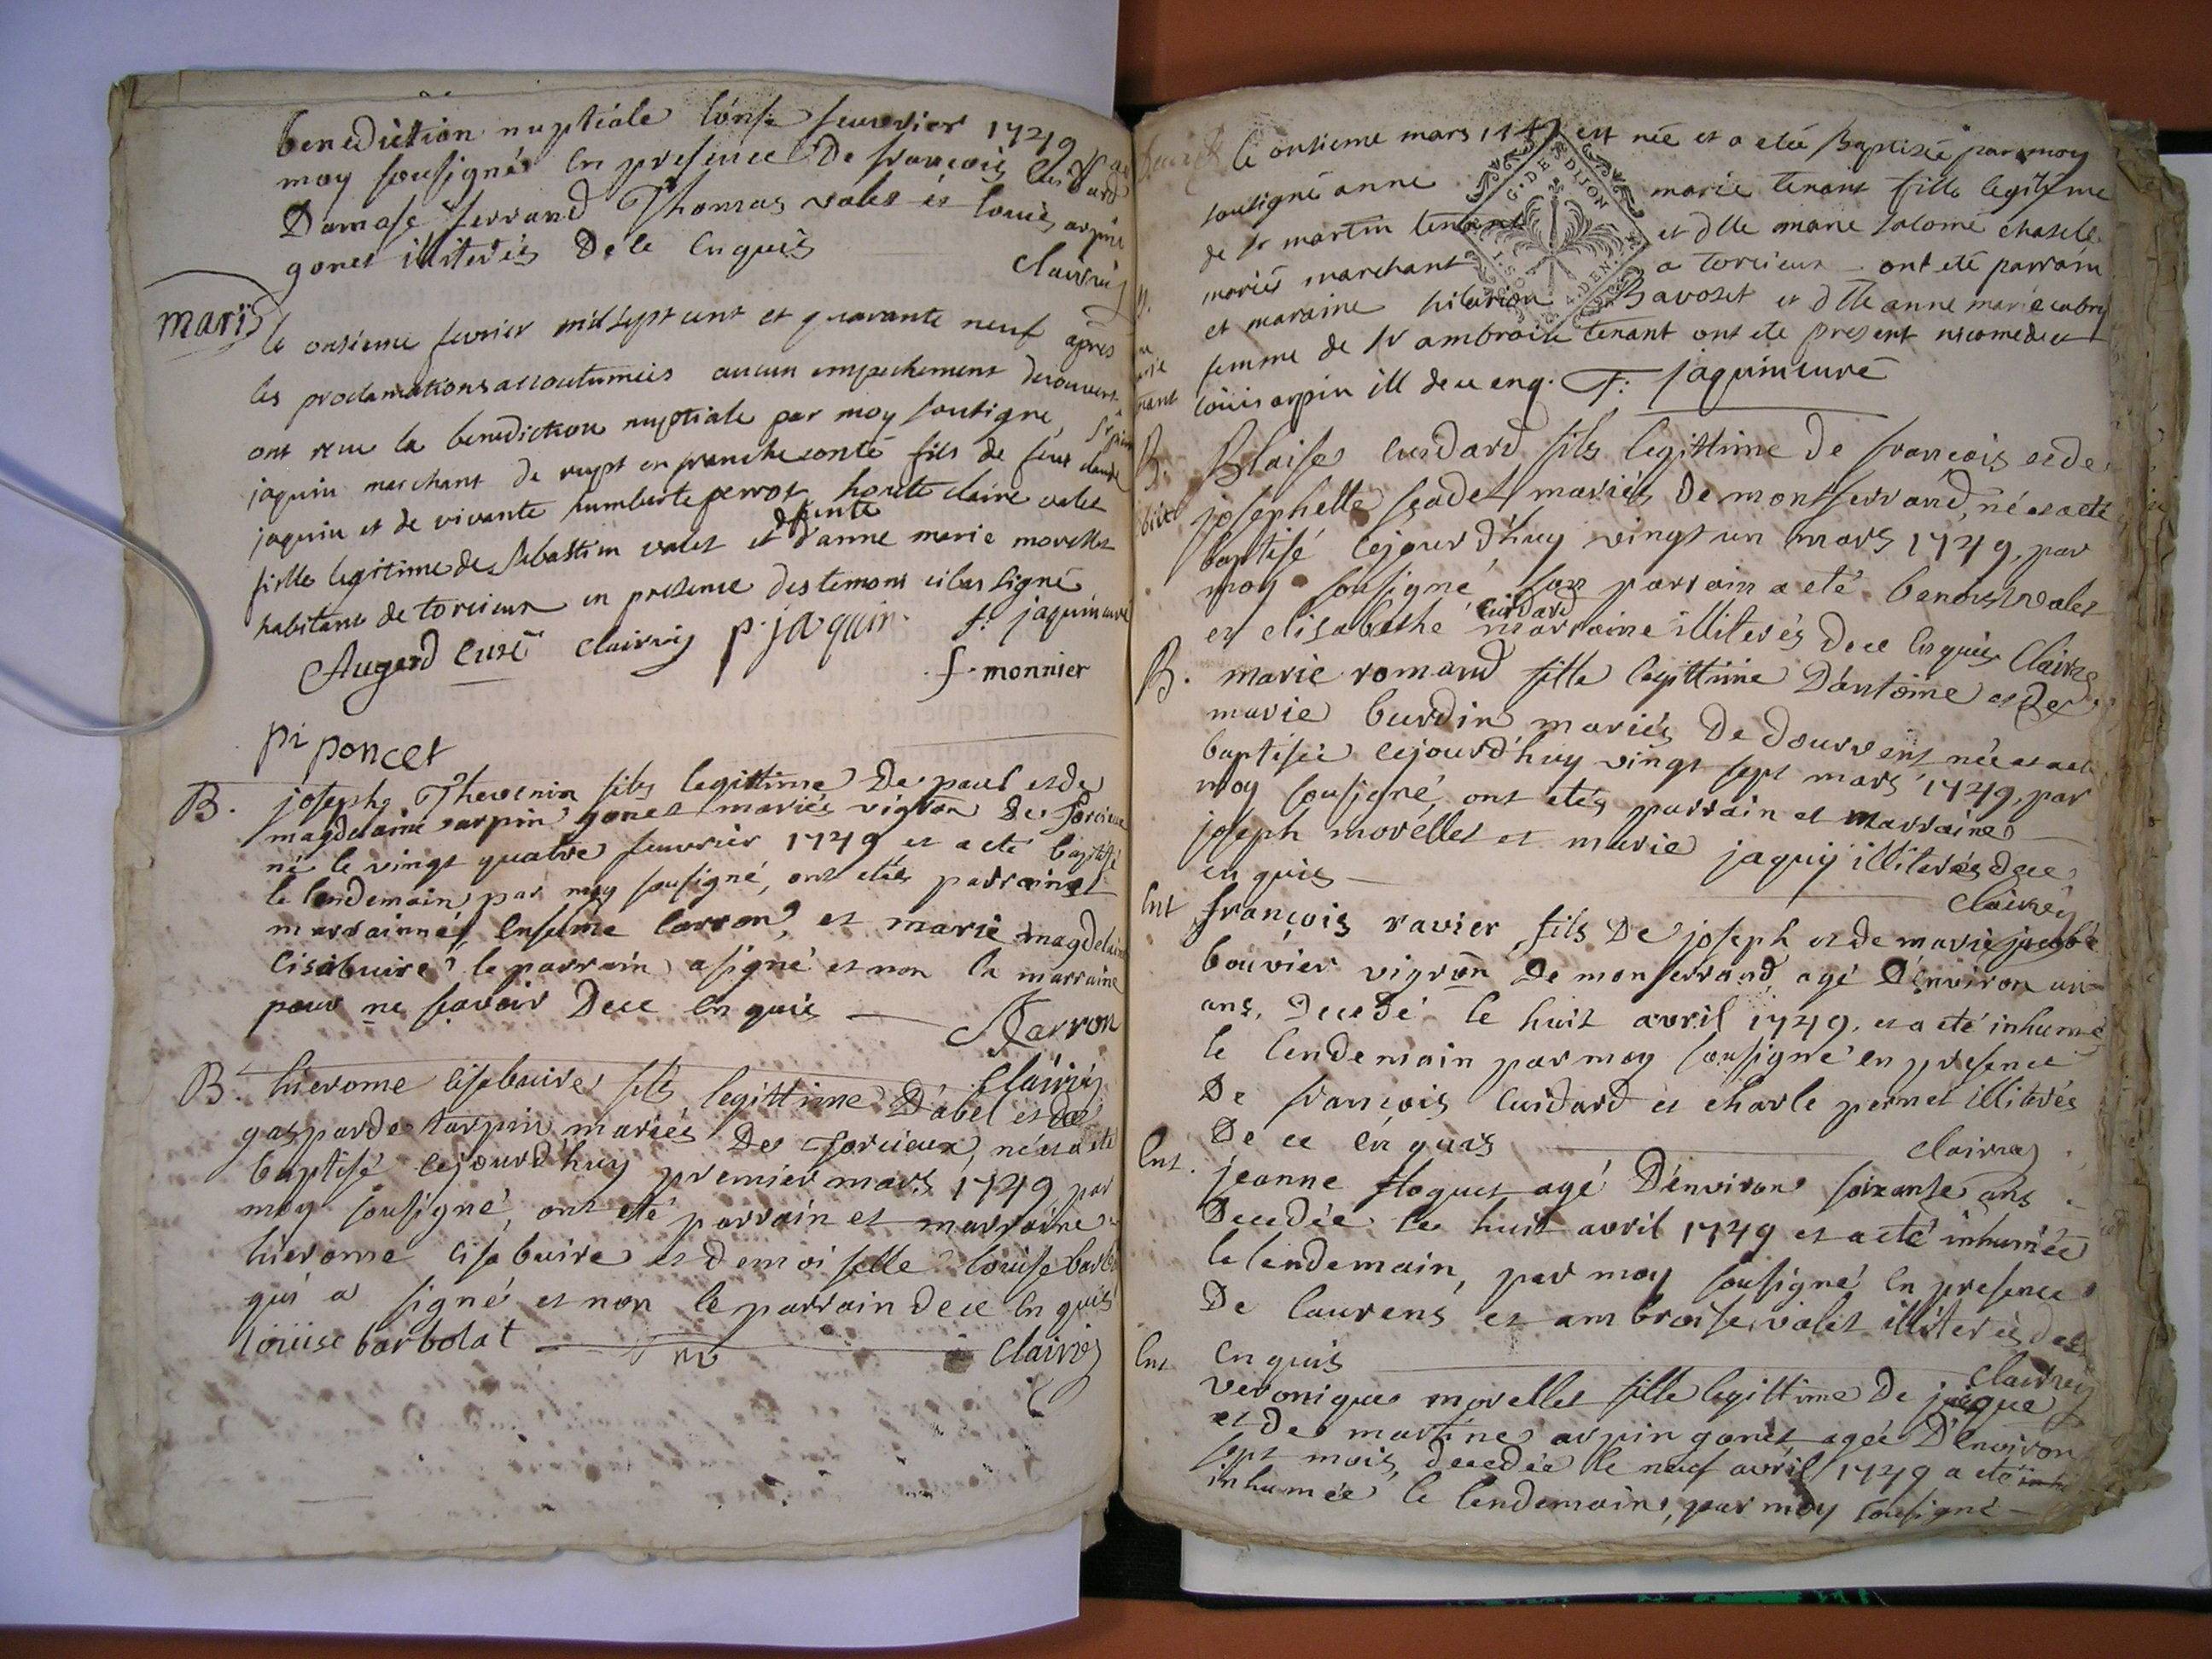 benediction nuptiale l'onse feuvrier 1749 par
moy sousigné en presence De françois Cuidard
Damase ferrand Thomas valet et louis arpin
gonet illiterés De ce Enquis
Clairéy
mari
le onsieme fevrier mil sept cent et quarante neuf apres
les proclamations accoutumées aucun empechement decouvert
ont recu la benediction nuptiale par moy soutigné, Sr pierre
jaquin marchant de rupt en franche conté fils de feut claude
jaquin et de vivante humberte perrot, honete claire valet
fille legitime de Sebastien valet et defunte d'anne marie morellet
habitant de torcieux en presence des temoins ci bas signé
Augerd Curé Clairéy p. jaquin. f. jaquin curé
f. monnier
pi poncet
B. joseph Thevenin fils legittime De paul et de
magdelaine arpin gonet mariés vigron De Torcieux
né le vingt quatre feuvrier 1749 et a eté baptisé
le lendemain par moy sousigné, ont etés parrain et
marrainne, Enseme Carron, et marie magdelaine
Cisebuire, le parrain a signé et non la marraine
pour ne scavoir De ce Enquis
Carron
Clairéy
B. hierome Cisebuire fils legittime D'abel et de
gasparde tarpin mariés De Torcieux, né et a eté
baptisé cejourd'huy premier mars 1749 par
moy sousigné, ont eté parrain et marraine
hierome Cisebuire et demoiselle louise barbolat
qui a signé et non le parrain de ce Enquis
louise barbolat Clairéy
le onsieme mars 1749 est née et a eteé Baptiseé par moy
soutigné anne marie tenant fille legitime
de Sr martin tenant et dlle marie salomé chatelle
mariés marchant a torcieux ont eté parrain
et maraine hilarion Bavoset et dlle anne marie
femme de Sr ambroise tenant ont ete present nicomede et
loüis arpin ill de ce enq. F: jaquin curé
G. DE DIJON
B. Blaise Cuidard fils legittime De françois et de
josephelle madet mariés De montferrand, né et a eté
baptisé cejourd'huy vingt un mars 1749, par
moy sousigné, son parrain a eté benoist valet
et elisabethe Cuidard marraine illiterés De ce Enquis Clairéy
B. marie romand fille legittime D'antoine et De
marie burdin mariés De Douvrent née et a eté
baptisée cejourd'huy vingt sept mars 1749, par
moy sousigné, ont etés parrain et marraine
joseph morellet et marie jaquin illiterés de ce
enquis
Clairéy
Ent françois ravier fils De joseph et de marie
bouvier vigron De monferrand, agé D'environ un
ans, Decedé le huit avril 1749, et a eté inhumé
le lendemain par moy sousigné en presence
De françois Cuidard et charle pernet illiterés
De ce Enquis Clairéy
Ent. jeanne floquet agé D'environ soixante ans
Decedée le huit avril 1749 et a eté inhumée
le lendemain, par moy sousigné En presence
De laurens et ambroise valet illiterés de ce
Enquis
Clairéy
Ent veronique morellet fille legittime De jacque
et de martine arpin gonet agée D'environ
sept mois, decedée le neuf avril 1749 a eté
inhumée le lendemain, par moy sousigné